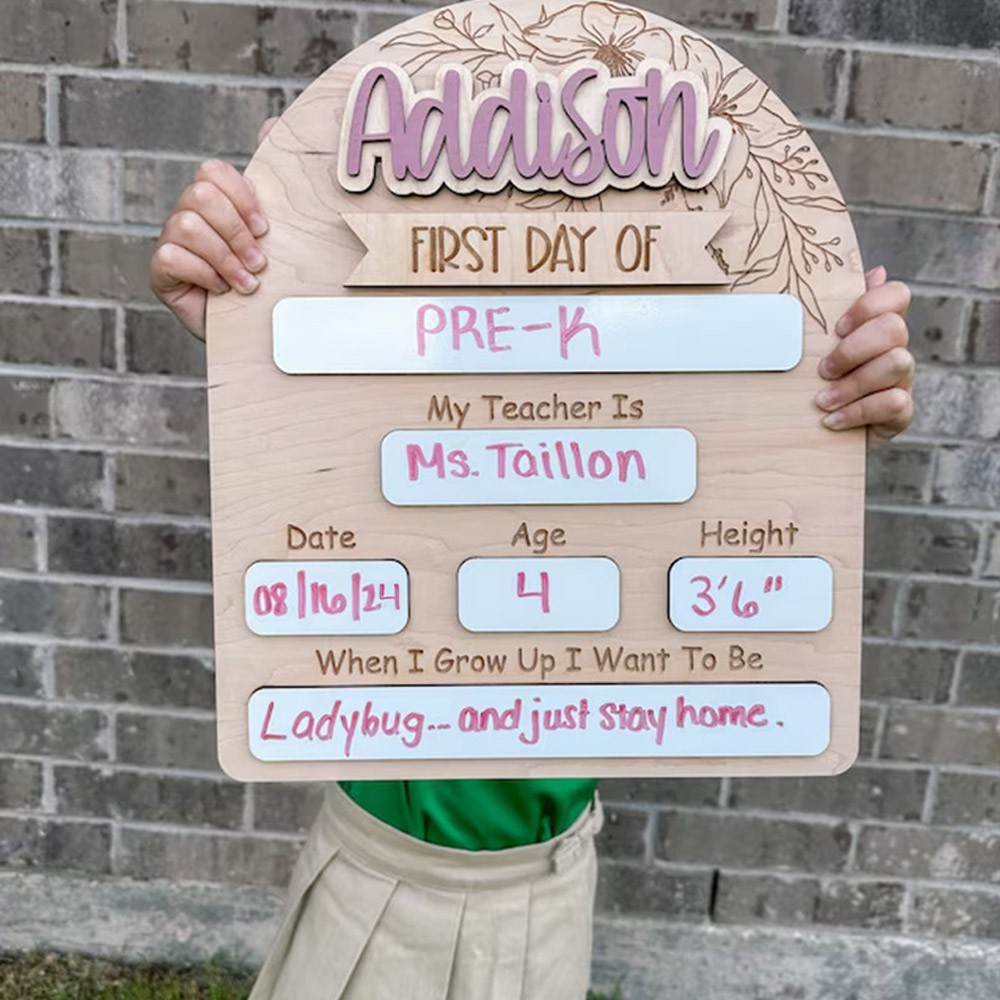 Addison
FIRST DAY OF
PRE-K
My Teacher Is
Ms. Taillon
Date Age Height
08/16/24 4 3'6"
When I Grow Up I Want To Be
Ladybug... and just stay home.